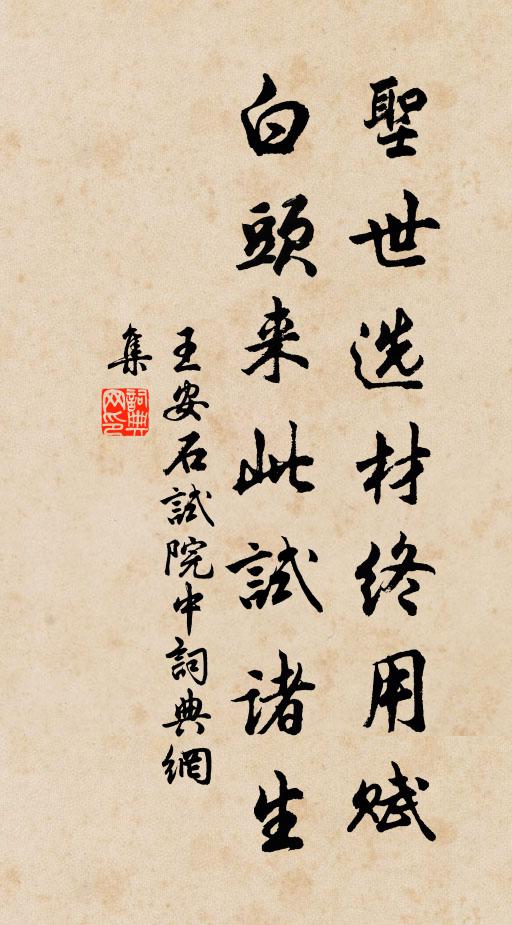 聖世选材终用赋
白頭来此試诸生
王安石試院中詞典網
集
詞典
网印